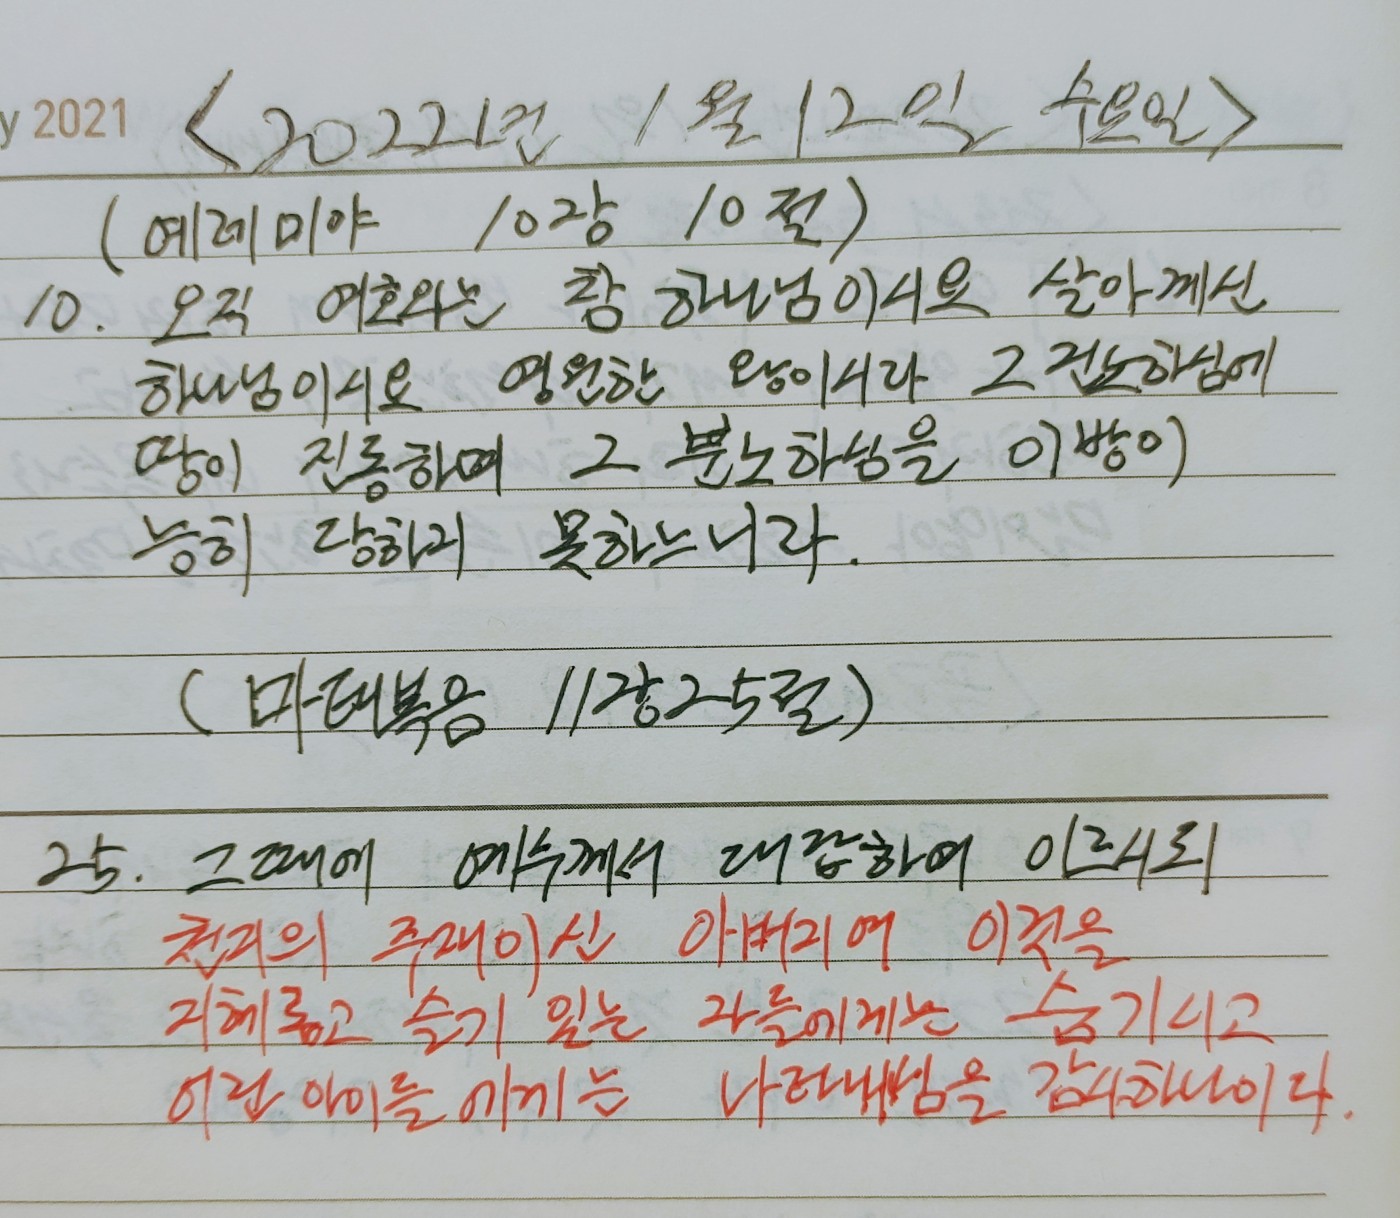 y 2021
<2022년 1월 12일 수요일>
(예레미야 10장 10절)
10. 오직 여호와는 참 하나님이시요 살아계신
하나님이시요 영원한 왕이시라 그 진노하심에
땅이 진동하며 그 분노하심을 이방이
능히 당하지 못하느니라.
(마태복음 11장 25절)
25. 그때에 예수께서 대답하여 이르시되
천지의 주재이신 아버지여 이것을
지혜롭고 슬기 있는 자들에게는 숨기시고
어린 아이들에게는 나타내심을 감사하나이다.